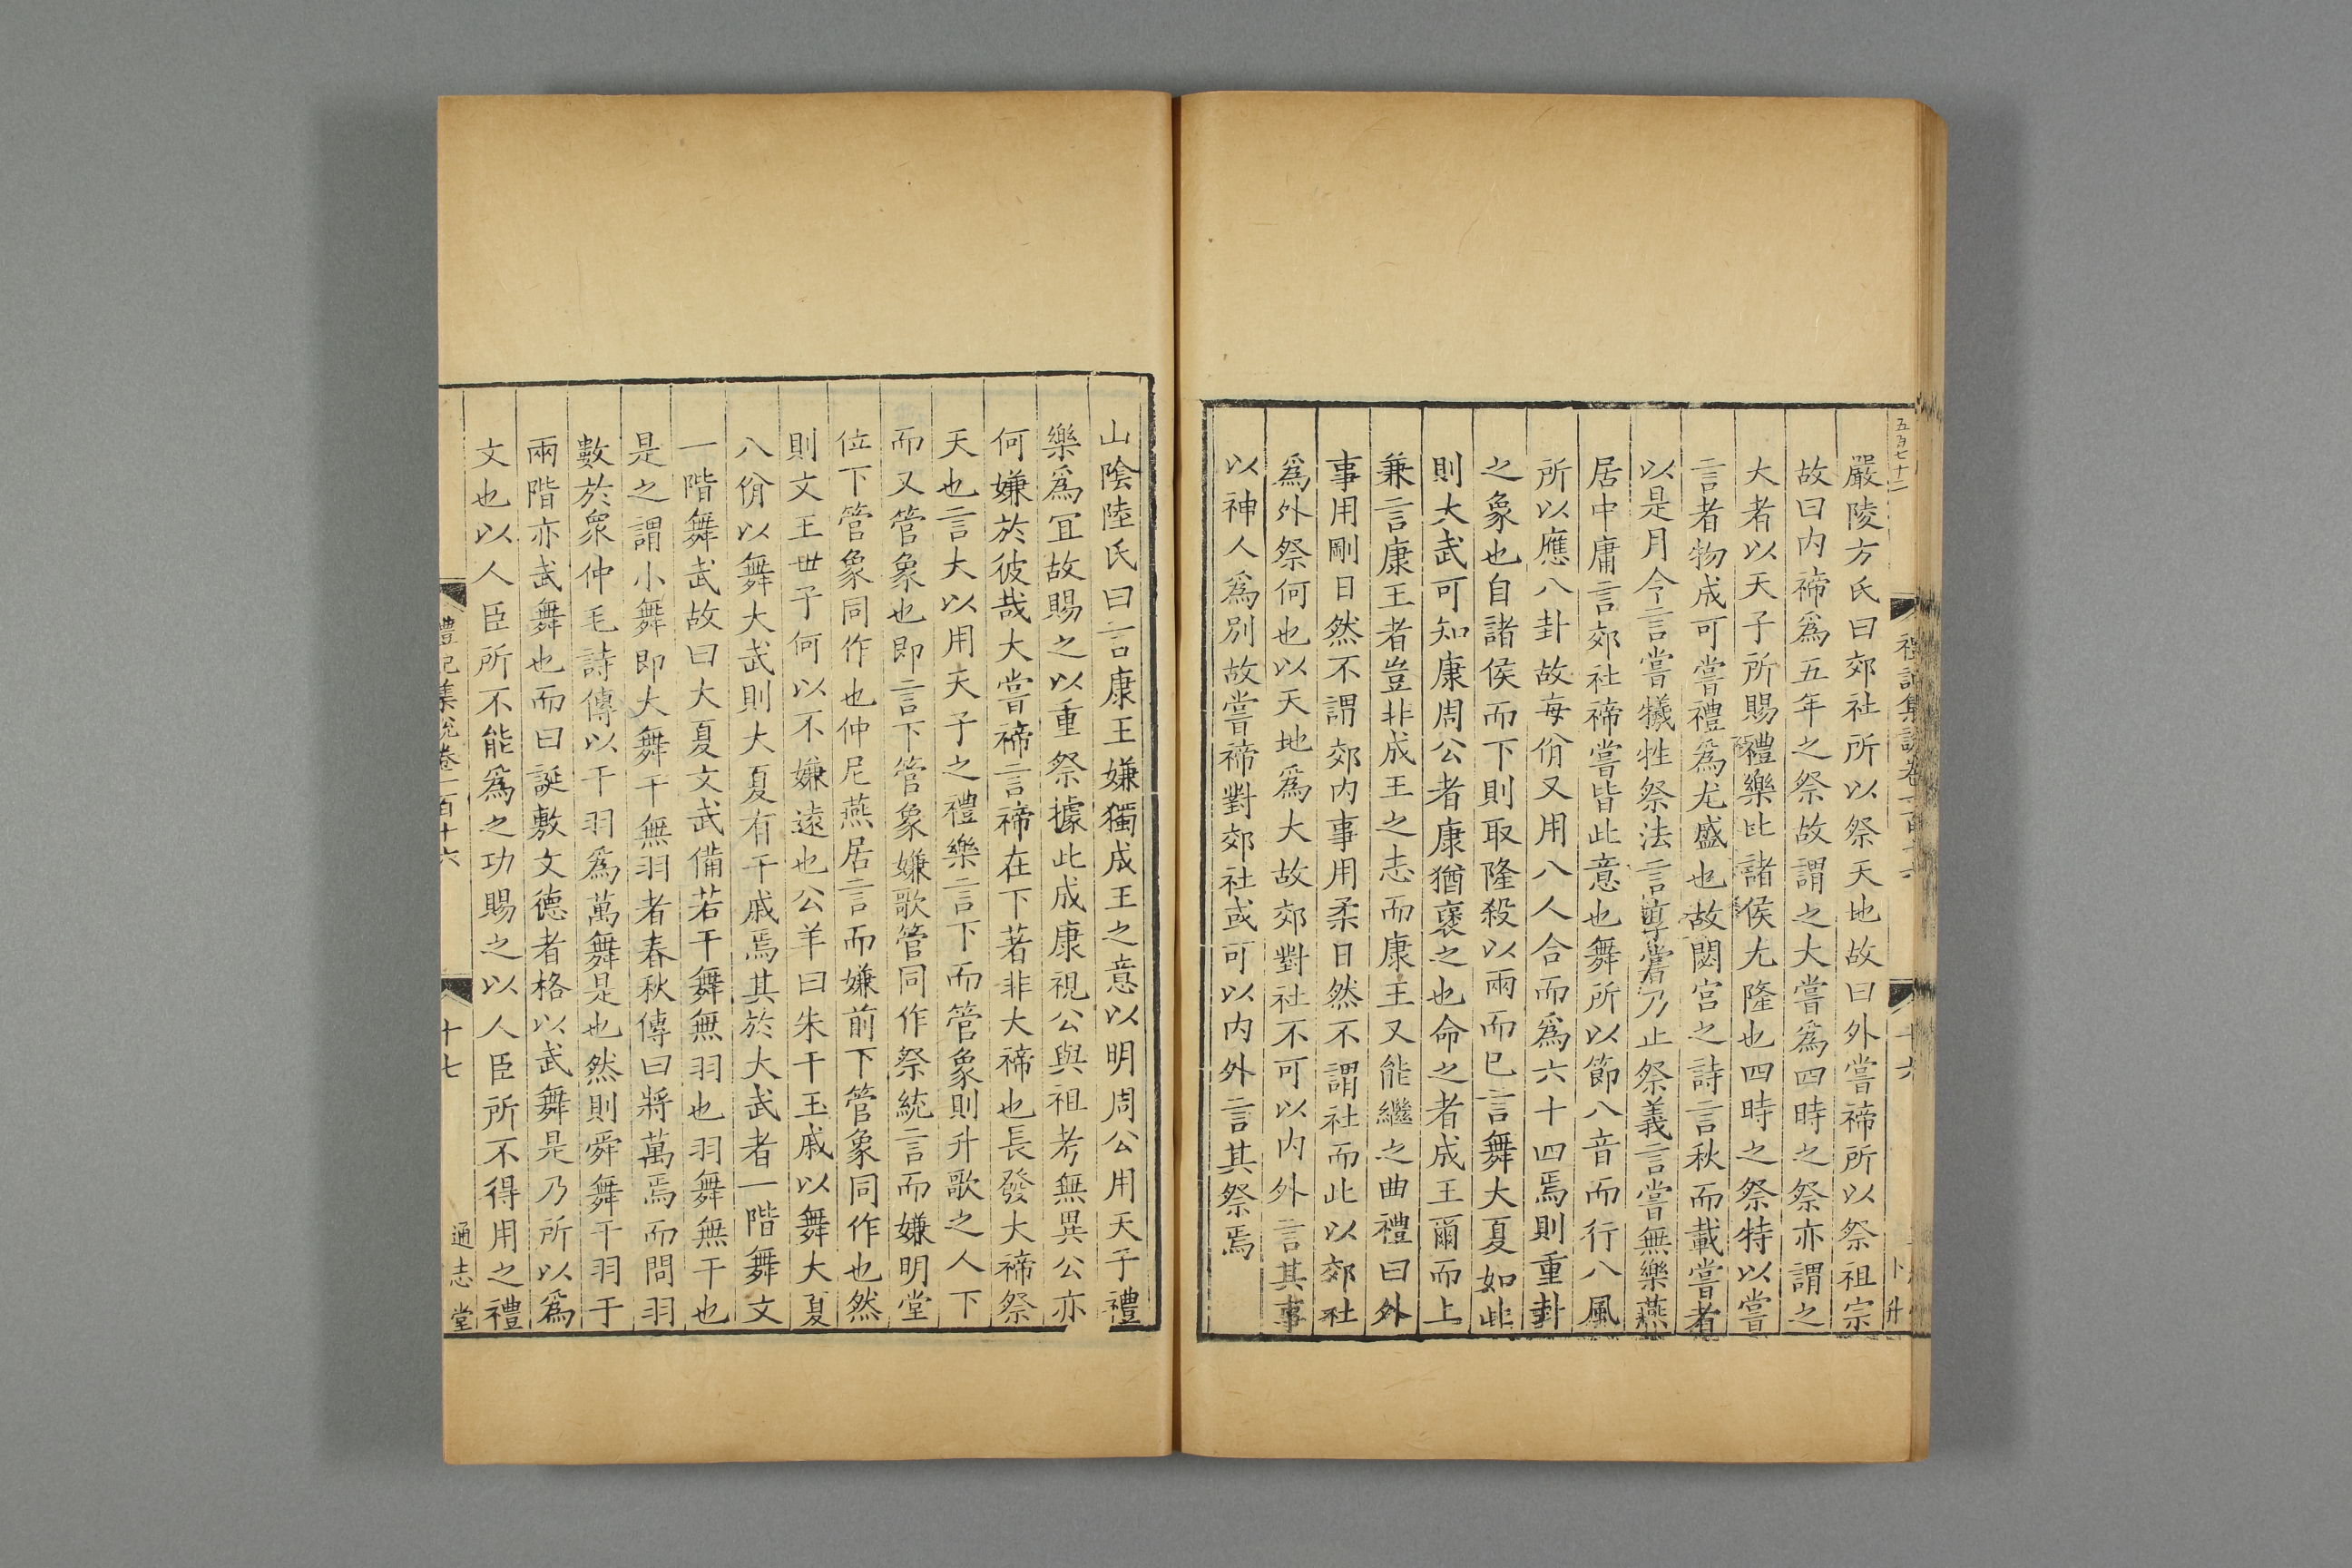 五百七十二
嚴陵方氏曰郊社所以祭天地故曰外嘗禘所以祭祖宗
故曰內禘爲五年之祭故謂之大嘗爲四時之祭亦謂之
大者以天子所賜禮樂比諸侯尤隆也四時之祭特以嘗
言者物成可嘗禮爲尤盛也故閟宮之詩言秋而載嘗者
以是月令言嘗犧牲祭法言享嘗乃止祭義言嘗無樂燕
居中庸言郊社禘嘗皆此意也舞所以節八音而行八風
所以應八卦故每佾又用八人合而爲六十四焉則重卦
之象也自諸侯而下則取隆殺以兩而巳言舞大夏如此
則大武可知康周公者康猶襃之也命之者成王爾而上
兼言康王者豈非成王之志而康王又能繼之曲禮曰外
事用剛日然不謂郊內事用柔日然不謂社而此以郊社
爲外祭何也以天地爲大故郊對社不可以內外言其事
以神人爲別故嘗禘對郊社或可以內外言其祭焉
禮記集說卷一百十六
十六
山陰陸氏曰言康王嫌獨成王之意以明周公用天子禮
樂爲宜故賜之以重祭據此成康視公與祖考無異公亦
何嫌於彼哉大嘗禘言禘在下著非大禘也長發大禘祭
天也言大以用天子之禮樂言下而管象則升歌之人下
而又管象也即言下管象嫌歌管同作祭統言而嫌明堂
位下管象同作也仲尼燕居言而嫌前下管象同作也然
則文王世子何以不嫌遠也公羊曰朱干玉戚以舞大夏
八佾以舞大武則大夏有干戚焉其於大武者一階舞文
一階舞武故曰大夏文武備若干舞無羽也羽舞無干也
是之謂小舞即大舞干無羽者春秋傳曰將萬焉而問羽
數於衆仲毛詩傳以干羽爲萬舞是也然則舜舞干羽于
兩階亦武舞也而曰誕敷文德者格以武舞是乃所以爲
文也以人臣所不能爲之功賜之以人臣所不得用之禮
禮記集說卷一百十六
十七
通志堂